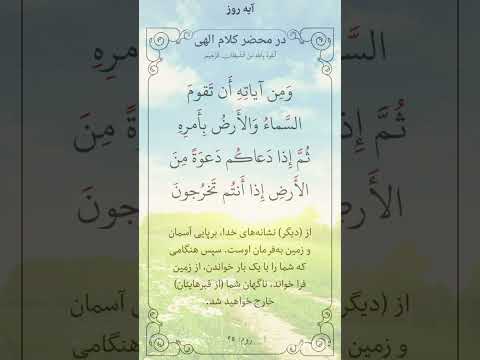 آیه روز
در محضر کلام الهی
أعوذ بالله من الشیطان الرجیم
وَمِن آياتِهِ أَن تَقومَ
السَّماءُ وَالأَرضُ بِأَمرِهِ
ثُمَّ إِذا دَعاكُم دَعوَةً مِنَ
الأَرضِ إِذا أَنتُم تَخرُجونَ
از (دیگر) نشانه‌های خدا، برپایی آسمان
و زمین به‌فرمان اوست. سپس هنگامی
که شما را با یک بار خواندن، از زمین
فرا خواند، ناگهان شما (از قبرهایتان)
خارج خواهید شد.
روم: ۲۵